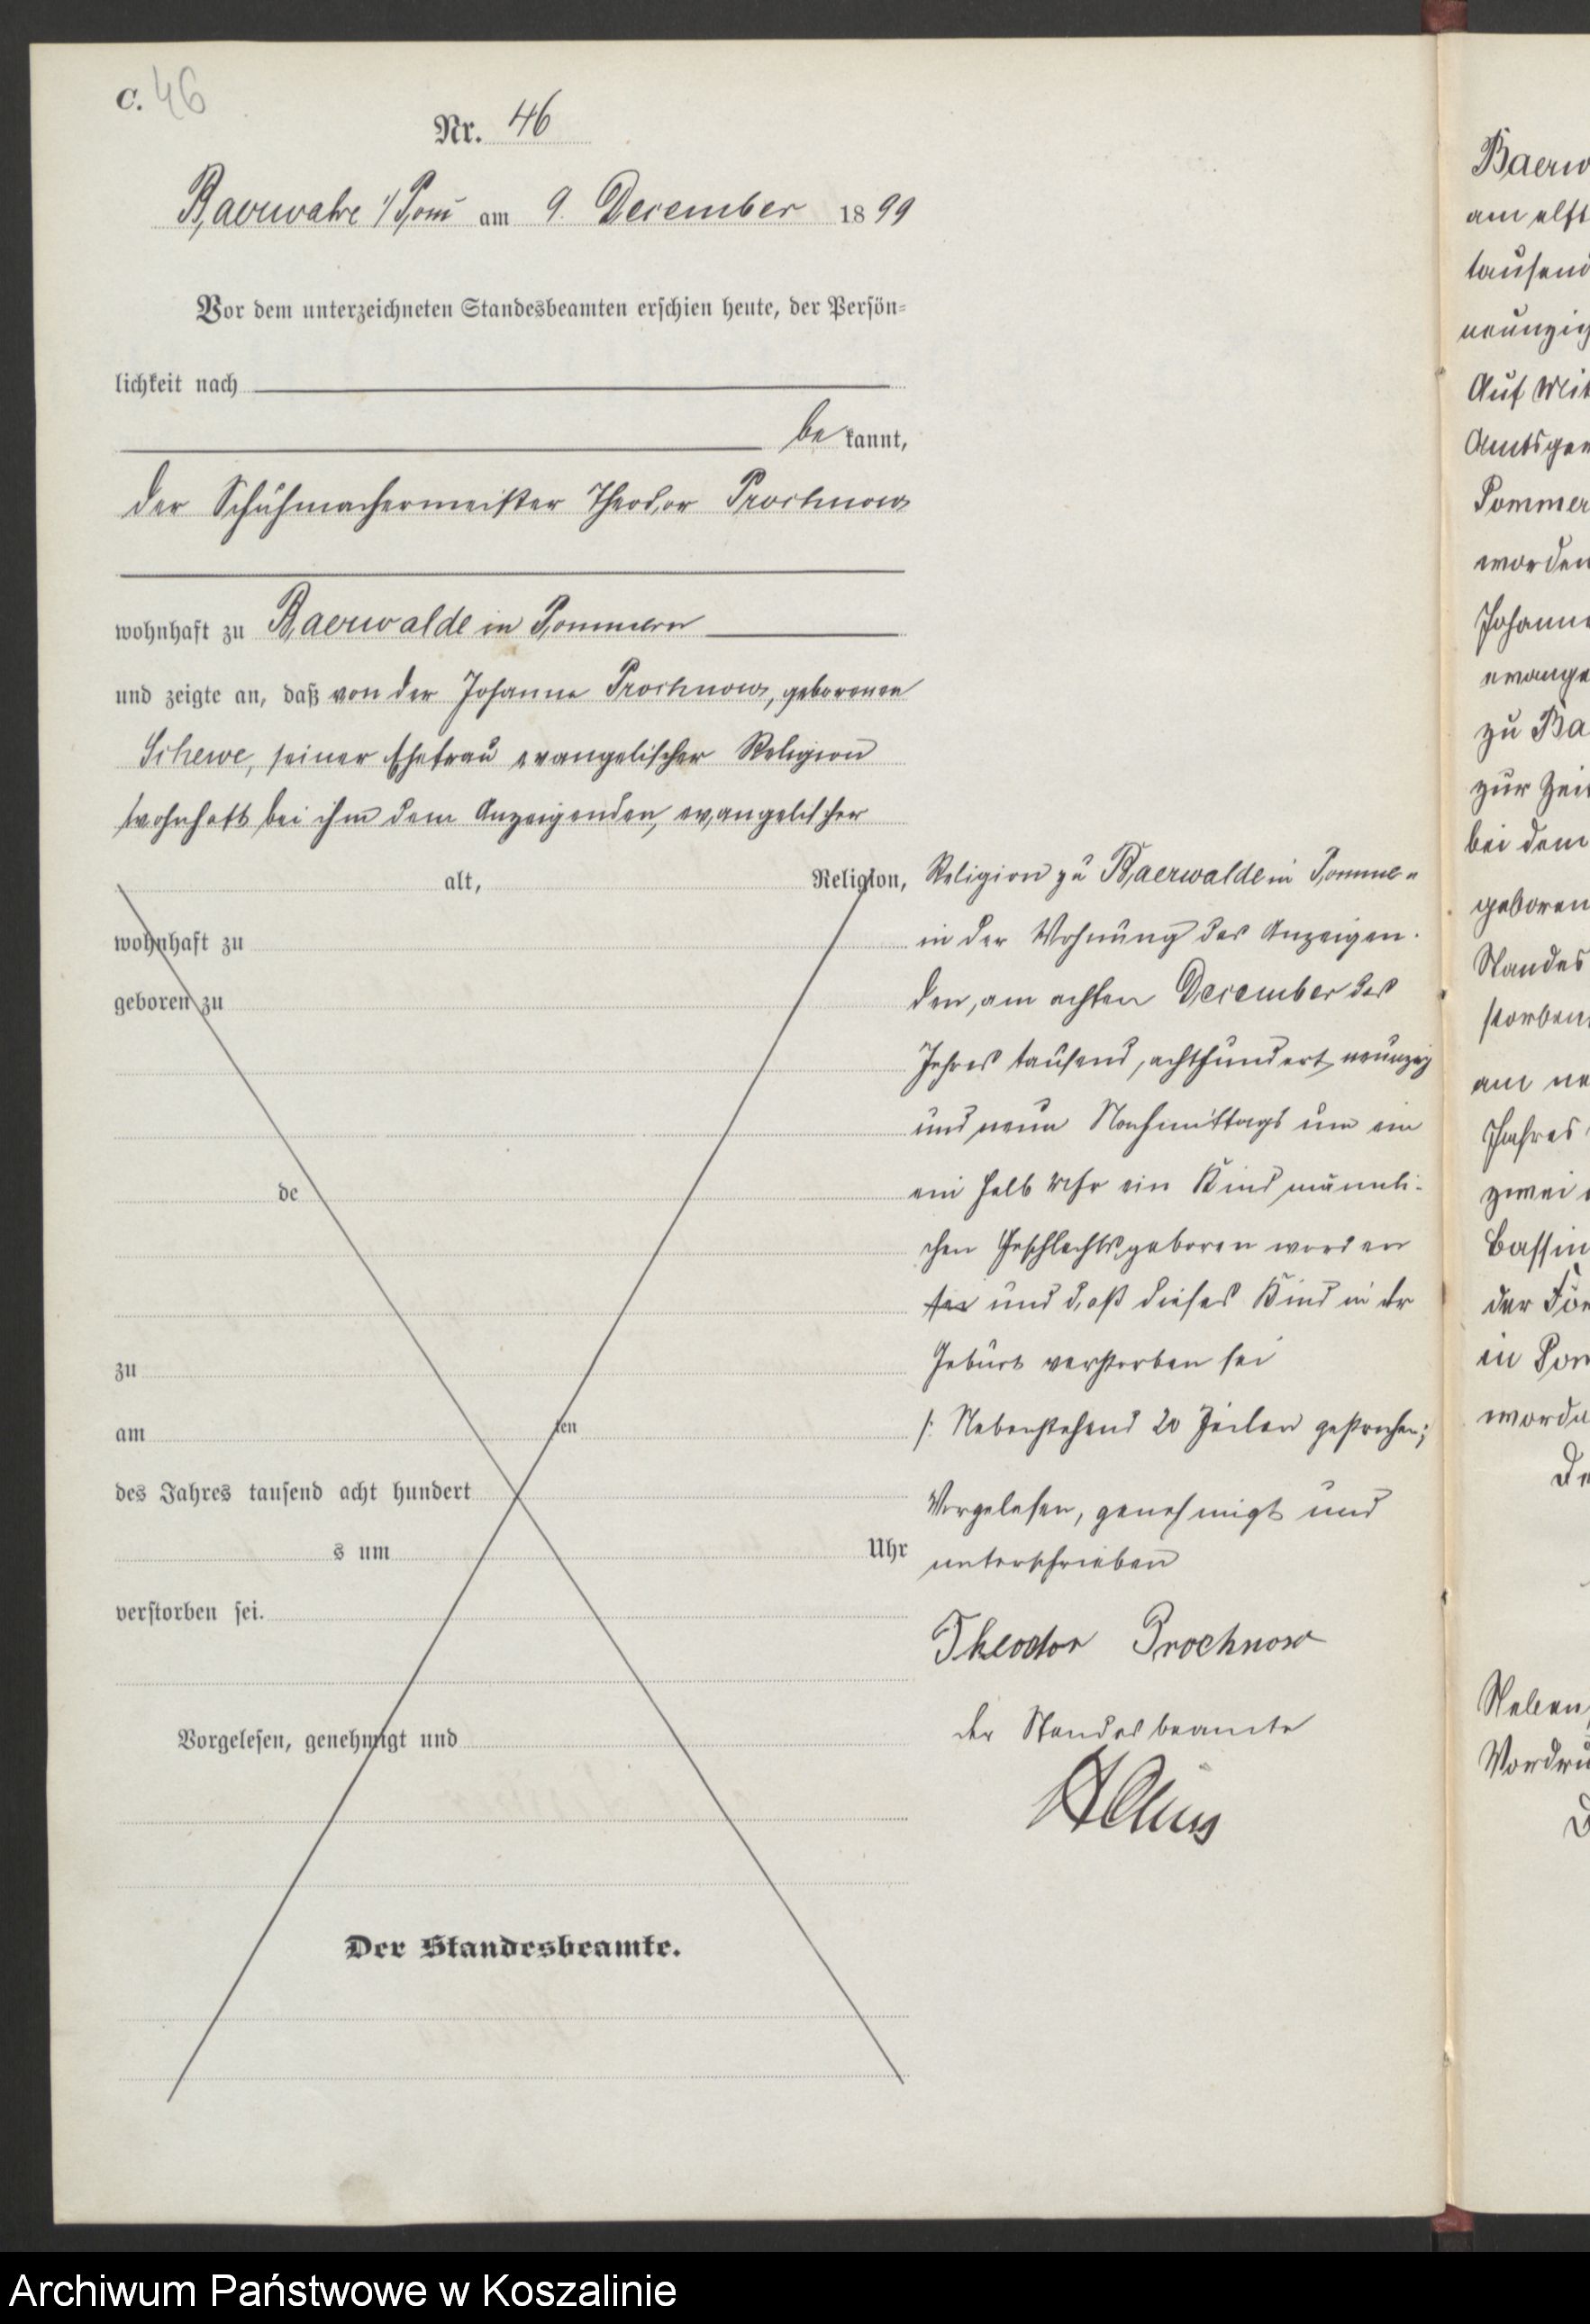 C. 46
Nr. 46
Baerwalde i/Pom am 9. December 1899
Vor dem unterzeichneten Standesbeamten erschien heute, der Persön-
lichkeit nach
be kannt,
der Schuhmachermeister Theodor Prochnow
wohnhaft zu Baerwalde in Pommern
und zeigte an, daß von der Johanne Prochnow, geborenen
Schewe, seiner Ehefrau evangelischer Religion
wohnhaft bei ihm dem Anzeigenden, evangelischer
alt, Religion,
wohnhaft zu
geboren zu
de
zu
am ten
des Jahres tausend acht hundert
s um Uhr
verstorben sei.
Vorgelesen, genehmigt und
Der Standesbeamte.
Religion zu Baerwalde in Pommern
in der Wohnung des Anzeigen-
den, am achten December des
Jahres tausend, achthundert neunzig
und neun Nachmittags um ein
ein halb Uhr ein Kind männli-
chen Geschlechts geboren worden
sei und daß dieses Kind in der
Geburt verstorben sei
/: Nebenstehend 20 Zeilen gestrichen;
Vorgelesen, genehmigt und
unterschrieben
Theodor Prochnow
der Standesbeamte
Baerw
am elft
tausend
neunzig
Auf Mit
Amtsger
Pommer
worden
Johann
evange
zu Ba
zur Zeit
bei dem
geboren
Standes
storben
am ne
Jahres
zwei
Bassin
in Pom
worde
Neben
Vordru
Archiwum Państwowe w Koszalinie